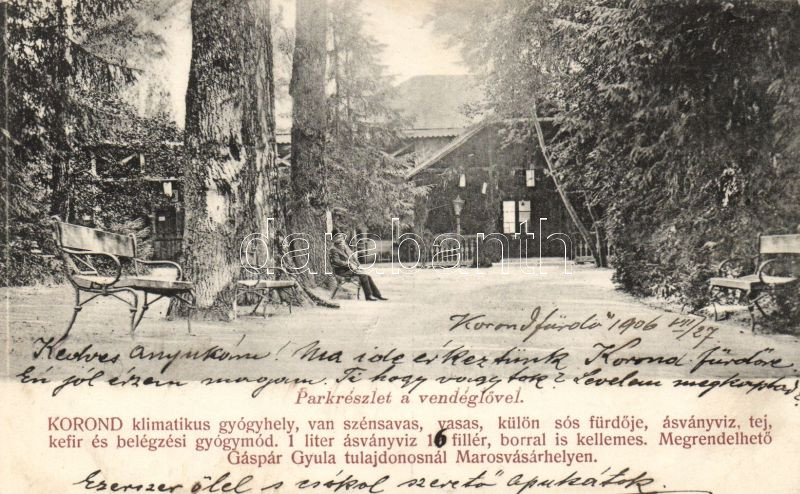 darabanth
Korondfürdő 1906 VII/27
Kedves Anyukám! Ma ide érkeztünk Korond fürdőre.
Én jól érzem magam. Ti hogy vagytok? Levelem megkaptad?
Parkrészlet a vendéglővel.
KOROND klimatikus gyógyhely, van szénsavas, vasas, külön sós fürdője, ásványviz, tej,
kefir és belégzési gyógymód. 1 liter ásványviz 16 fillér, borral is kellemes. Megrendelhető
Gáspár Gyula tulajdonosnál Marosvásárhelyen.
Ezerszer ölel s csókol szerető Apukátok.